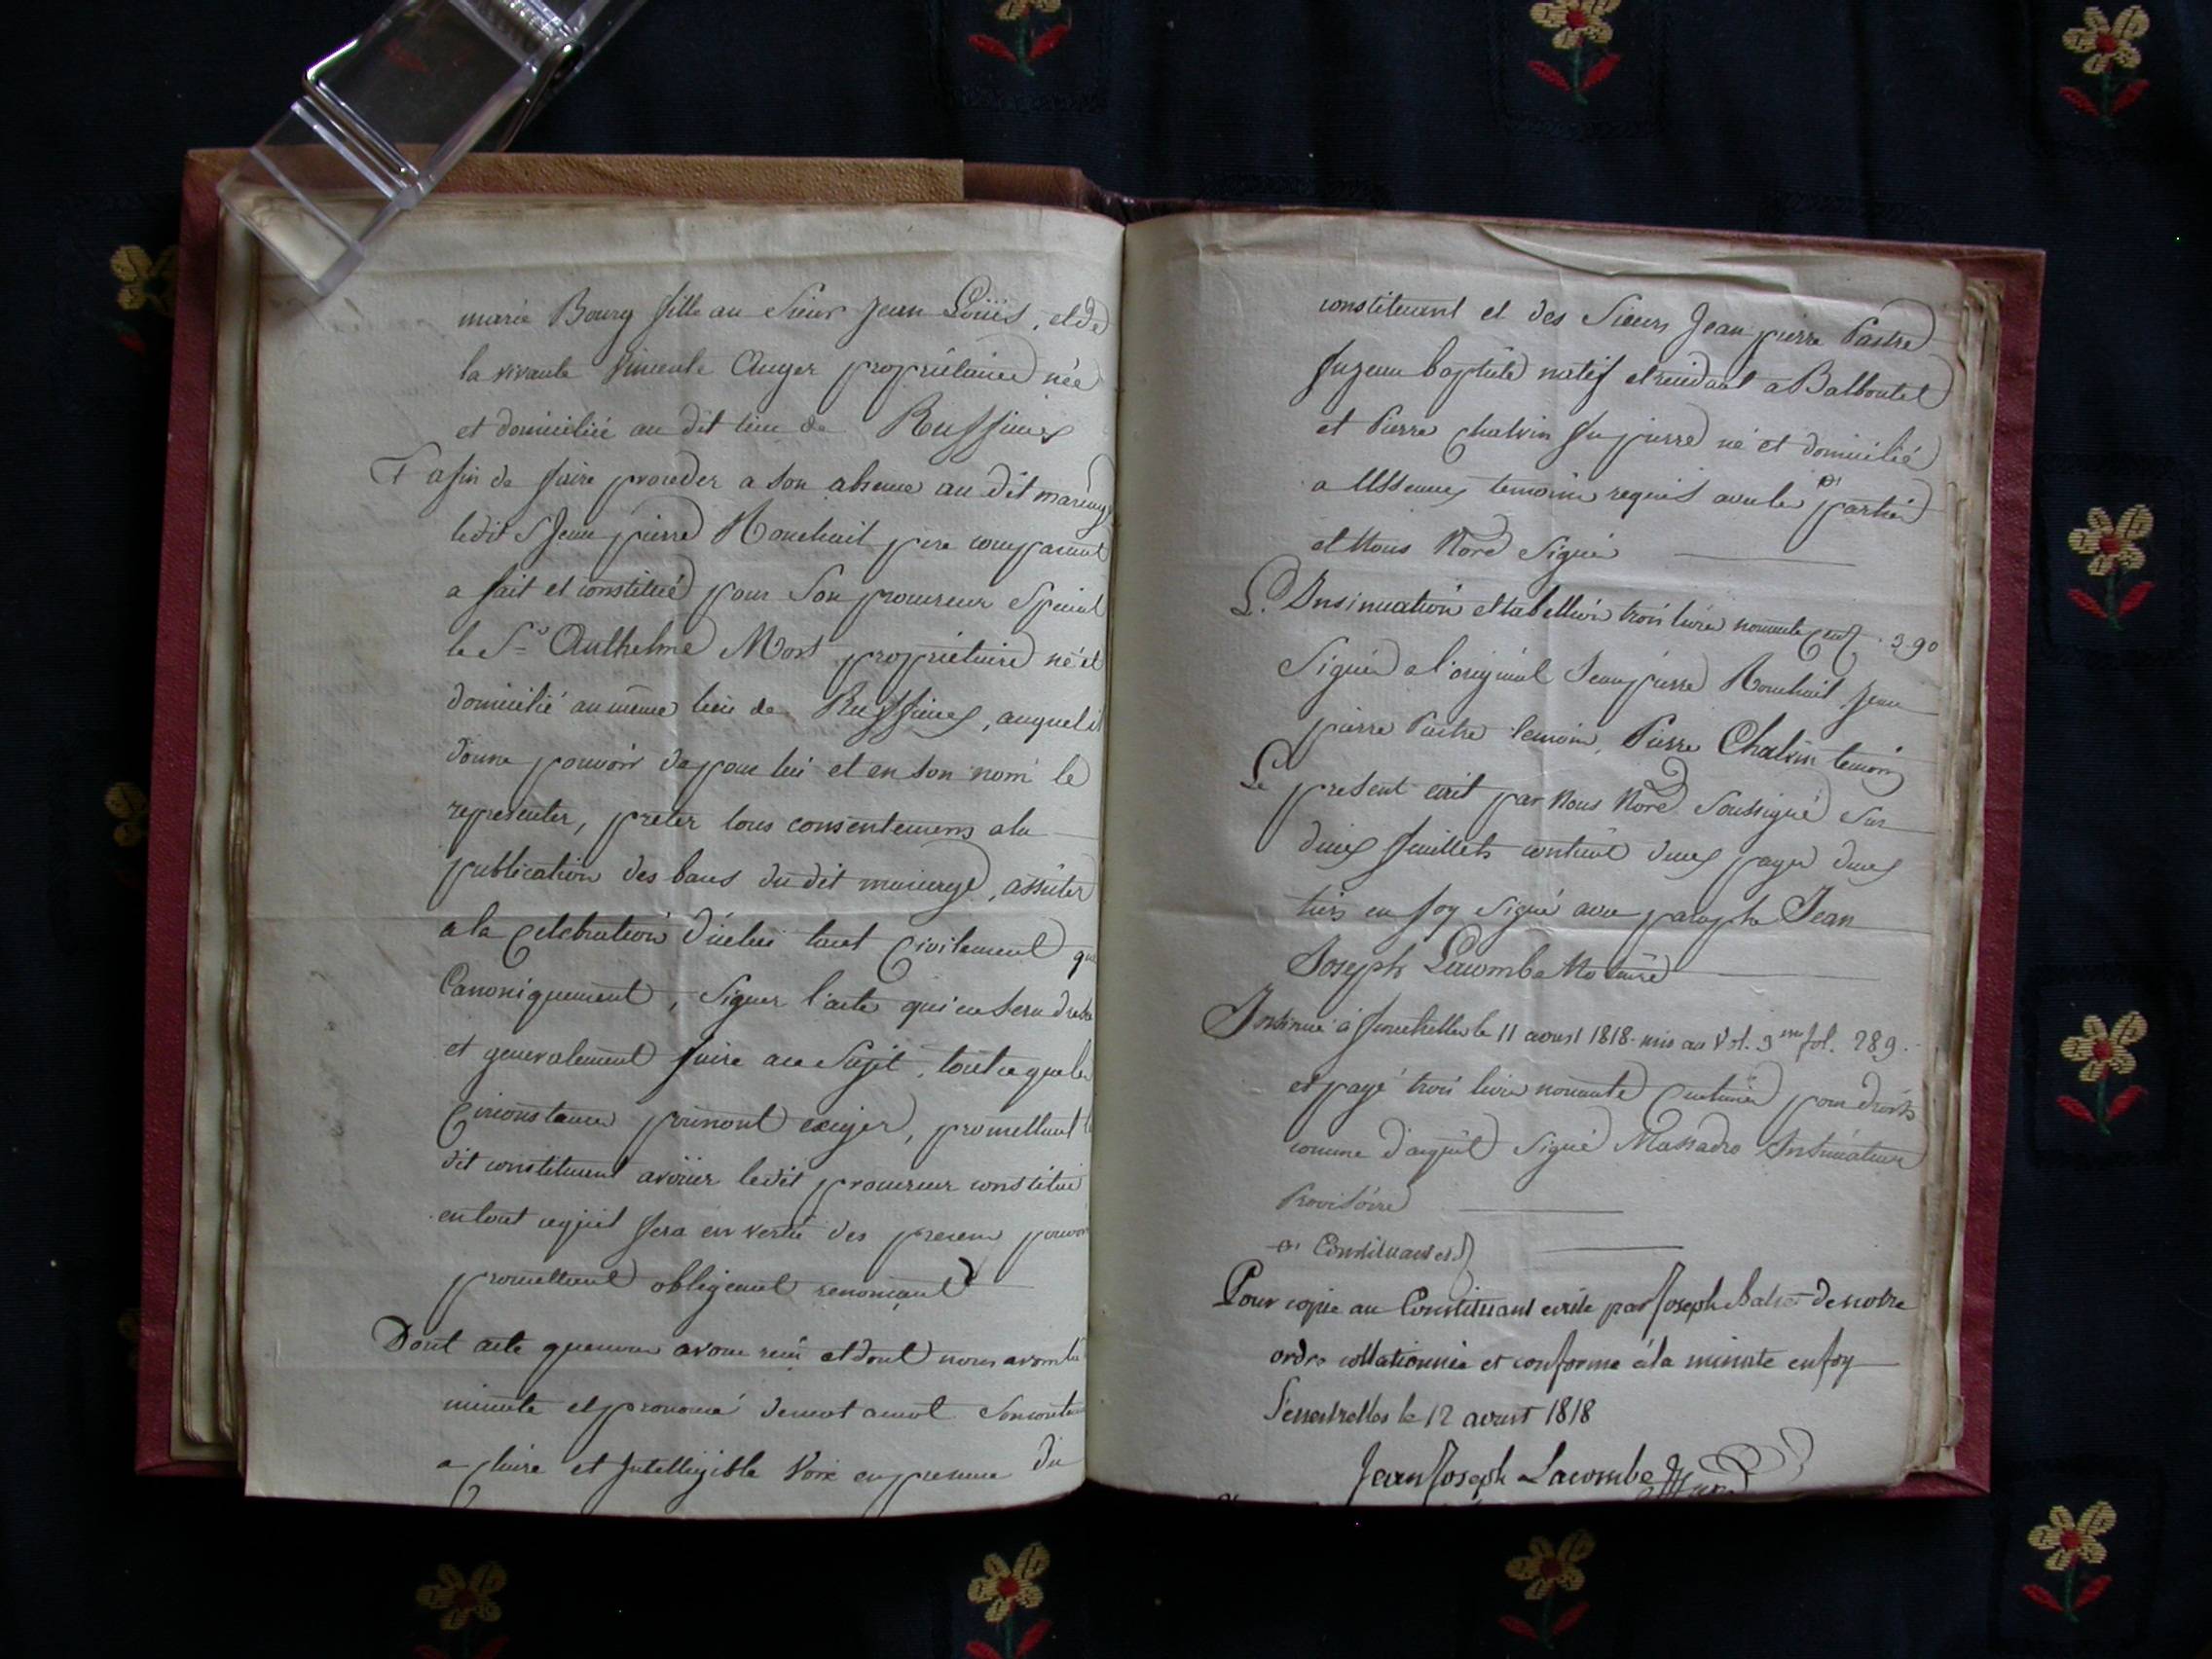 marie Bourg fille au Sieur Jean Loüis, et de
la vivante Vincente Auger propriétaires née
et domiciliée au dit lieu de Ruffieux
afin de faire proceder a son absence au dit mariage
ledit S Jean pierre Ronchail pere comparant
a fait et constitué pour Son procureur Spécial
le Sr Anthelme Mort propriétaire né et
domicilié au même lieu de Ruffieux, auquel il
donne pouvoir de pour lui et en son nom le
representer, preter tous consentemens a la
publication des bans du dit mariage, assister
a la Celebration d'icelui tant Civilement que
Canoniquement, Signer l'acte qui en sera dressé
et generalement faire au Sujet, tout ce que les
Circonstances pourront exiger, promettant le
dit constituant avoüer ledit procureur constitué
en tout ce qu'il fera en vertu des presens pouvoirs
promettant obligeant renonçant
Dont acte que nous avons reçu et dont nous avons lu
minute et prononcé devant avoir Son contenu
a claire et Intelligible Voix en presence du
constituant et des Sieurs Jean pierre Pastre
fu jean baptiste natif et residant a Balboutet
et Pierre Chalvin fu pierre né et domicilié
a Usseaux temoins requis avec les parties
et Nous Nore Signés
L'Insinuation et tabellion trois livres nonante Cent. 3.90
Signés a l'original Jean pierre Ronchail Jean
pierre Pastre temoin, Pierre Chalvin temoin
Le present ecrit par Nous Nore Soussigné Sur
deux feuillets contient deux pages deux
tiers en foy Signé avec paraphe Jean
Joseph Lacombe Notaire
Insinué à fenestrelles le 11 aoust 1818. mis au Vol. 3me fol. 289.
et payé trois livres nonante Centimes pour droits
comme d'acquit Signé Massadro Insinuateur
Provisoire
Constituant et
Pour copie au Constituant ecrite par Joseph de notre
ordre collationnée et conforme à la minute en foy
Fenestrelles le 12 aoust 1818
Jean Joseph Lacombe